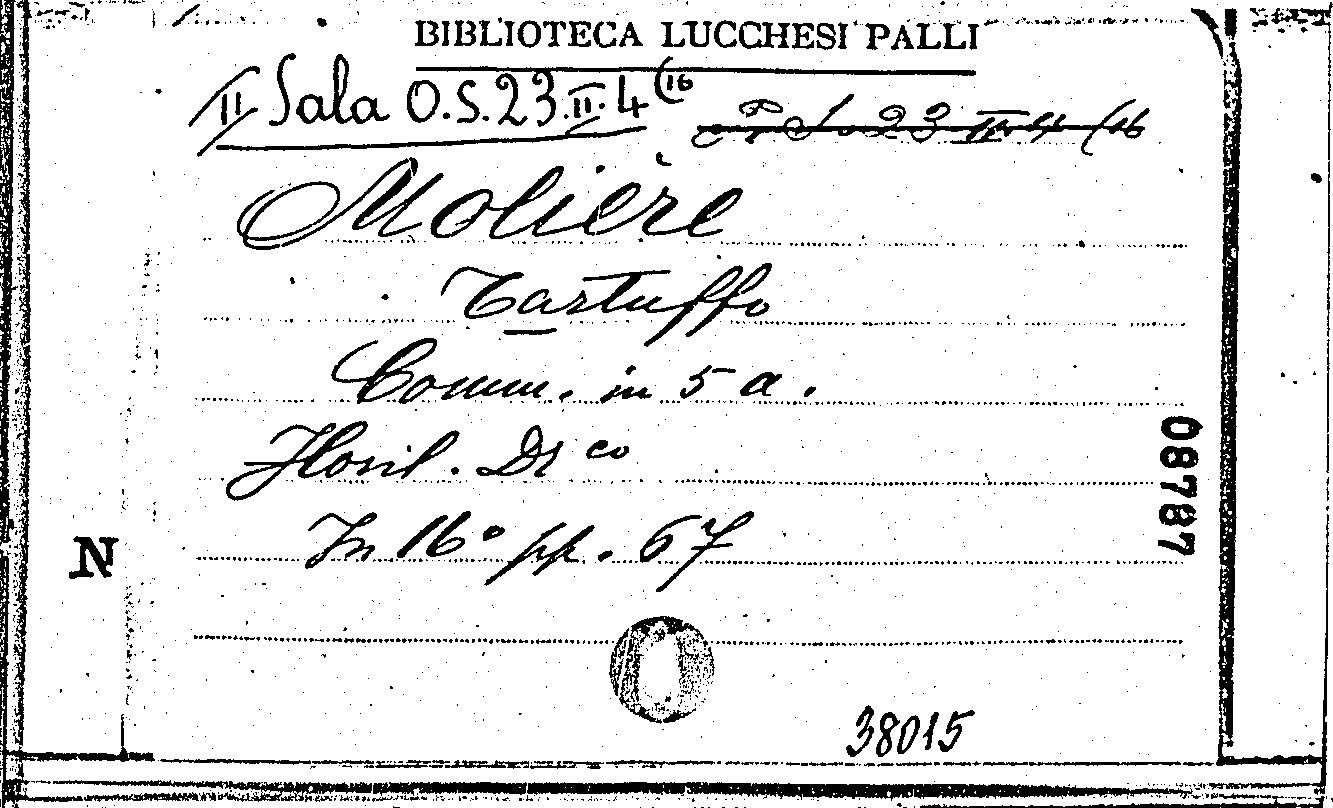 BIBLIOTECA LUCCHESI PALLI
II Sala O.S.23.II.4(16
23 II 4 (16
Molière
Tartuffo
Comm. in 5 a.
Floril. Dr co
In 16° pp. 67
08787
N
38015